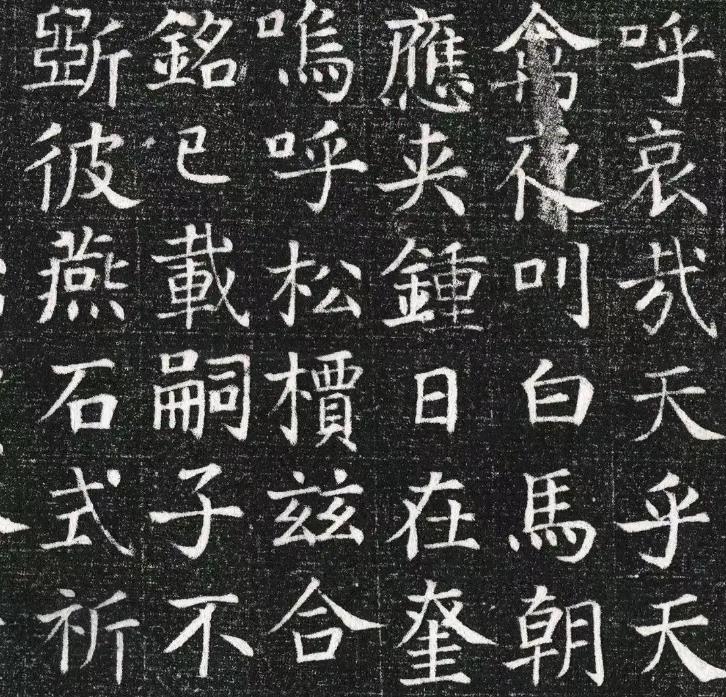 呼哀哉天乎天
禽夜叫白馬朝
應夹鍾日在奎
嗚呼松檟兹合
銘已載嗣子不
斲彼燕石式祈